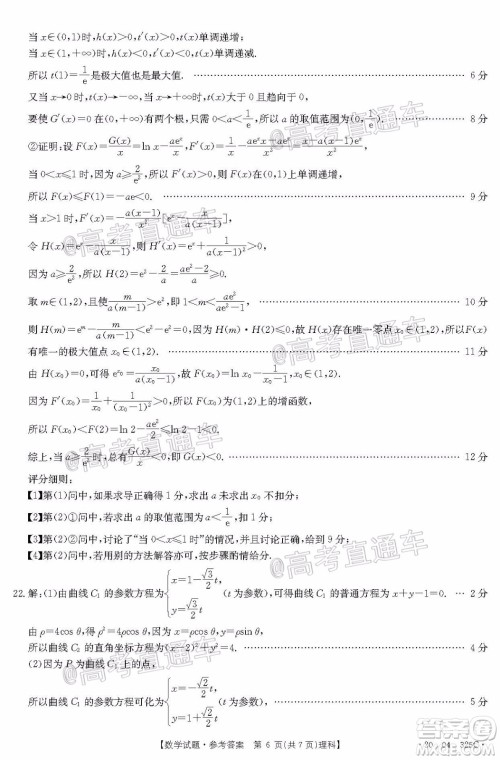 当 x∈(0,1)时,h(x)>0,t′(x)>0,t(x)单调递增;
当 x∈(1,+∞)时,h(x)<0,t′(x)<0,t(x)单调递减.
所以 t(1)=1/e 是极大值也是最大值. 6 分
又当 x→0 时,t(x)→-∞,当 x→+∞时,t(x)大于 0 且趋向于 0,
要使 G′(x)=0 在(0,+∞)有两个根,只需 0<a<1/e,所以 a 的取值范围为(0,1/e). 8 分
②证明:设 F(x)=G(x)/x=ln x-aeˣ/x,F′(x)=1/x-aeˣ(x-1)/x².
当 0<x≤1 时,F′(x)>0,所以 F(x)在(0,1]上单调递增,
所以 F(x)≤F(1)=-ae<0. 9 分
当 x>1 时,F′(x)=-a(x-1)/x²[eˣ-x/(a(x-1))],
令 H(x)=eˣ-x/(a(x-1)),则 H′(x)=eˣ+1/(a(x-1)²)>0.
因为 a≥2/e²,所以 H(2)=e²-2/a=(ae²-2)/a≥0.
取 m∈(1,2),且使 m/(a(m-1))>e²,即 1<m<ae²/(ae²-1), 10 分
则 H(m)=eᵐ-m/(a(m-1))<e²-e²=0,因为 H(m)·H(2)≤0,故 H(x)存在唯一零点 x₀∈(1,2),即 F(x)
有唯一的极大值点 x₀∈(1,2). 11 分
由 H(x₀)=0,可得
因为
所以 F(x₀)<F(2)=ln 2-ae²/2≤ln 2-1<0.
综上,当 a≥2/e² 时,总有 G(x)/x<0. 12 分
评分细则:
【1】第(1)问中,如果求导正确得 1 分,求出 a 未求出 x₀ 不扣分;
【2】第(2)①问中,求出 a 的取值范围写成 0<a<1/e 不扣分;
【3】第(2)②问中,讨论了“当 0<x≤1 时”的情况且正确,得 1 分;
【4】第(2)问中,若用别的方法解答亦可,按步骤酌情给分.
22.解:(1)由曲线 C₁ 的参数方程为{x=1-√3/2 t, y=√3/2 t (t 为参数),可得曲线 C₁ 的普通方程为 x+y-1=0. 2 分
由 ρ=4cos θ,得 ρ²=4ρcos θ,x=ρcos θ,y=ρsin θ,
所以曲线 C₂ 的直角坐标方程为(x-2)²+y²=4. 4 分
(2)因为 P 为曲线 C₁ 与 x 轴的交点,所以 P(1,0).
所以曲线 C₁ 的参数方程可化为{x=1-√2/2 t, y=√2/2 t (t 为参数), 5 分
【数学试题·参考答案 第 6 页(共 7 页)理科】
@高考直通车